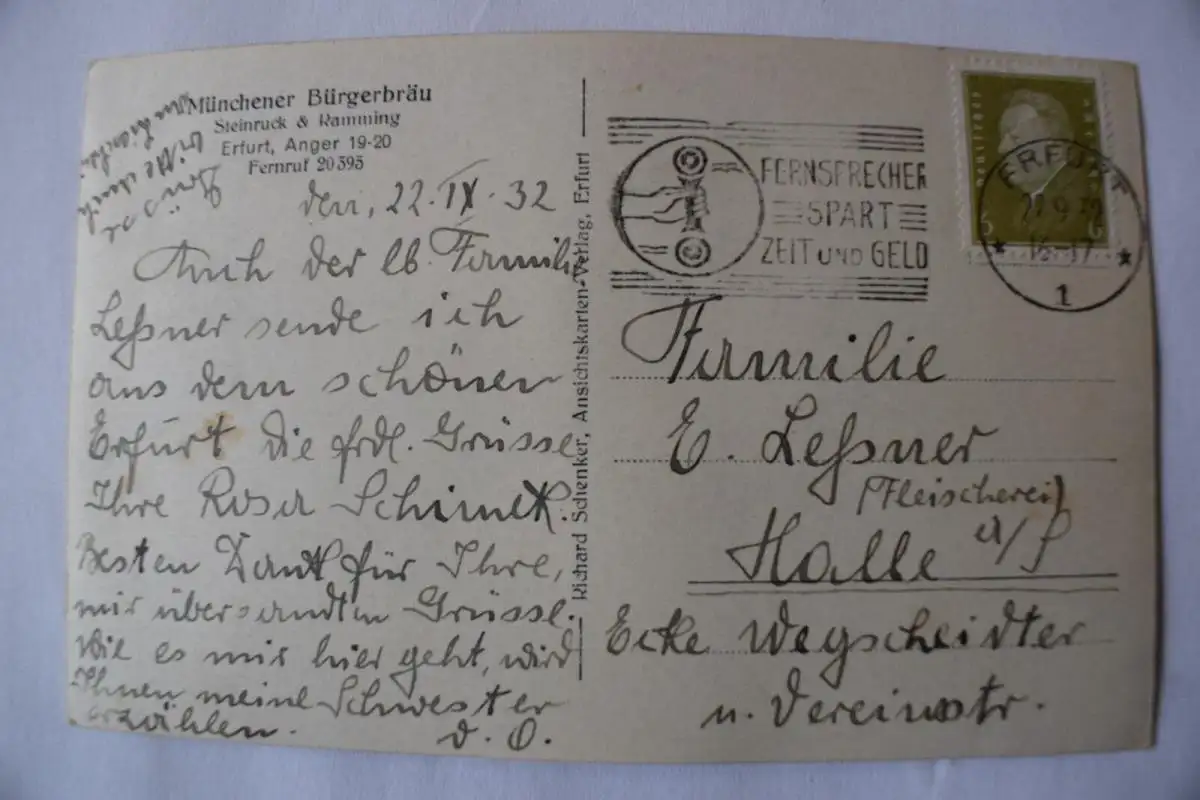 Münchener Bürgerbräu
Steinruck & Ramming
Erfurt, Anger 19-20
Fernruf 20395
bitte
den, 22.IX.32
Auch der lb. Familie
Leßner sende ich
aus dem schönen
Erfurt die frdl. Grüsse
Ihre Rosa Schimek.
Besten Dank für Ihre,
mir übersandten Grüsse.
Wie es mir hier geht, wird
Ihnen meine Schwester
erzählen. d. O.
Richard Schenker, Ansichtskarten-Verlag, Erfurt
FERNSPRECHER
SPART
ZEIT UND GELD
ERFURT
22.9.32
16-17
1
Familie
E. Leßner
(Fleischerei)
Halle a/S
Ecke Wegscheidter
u. Vereinstr.